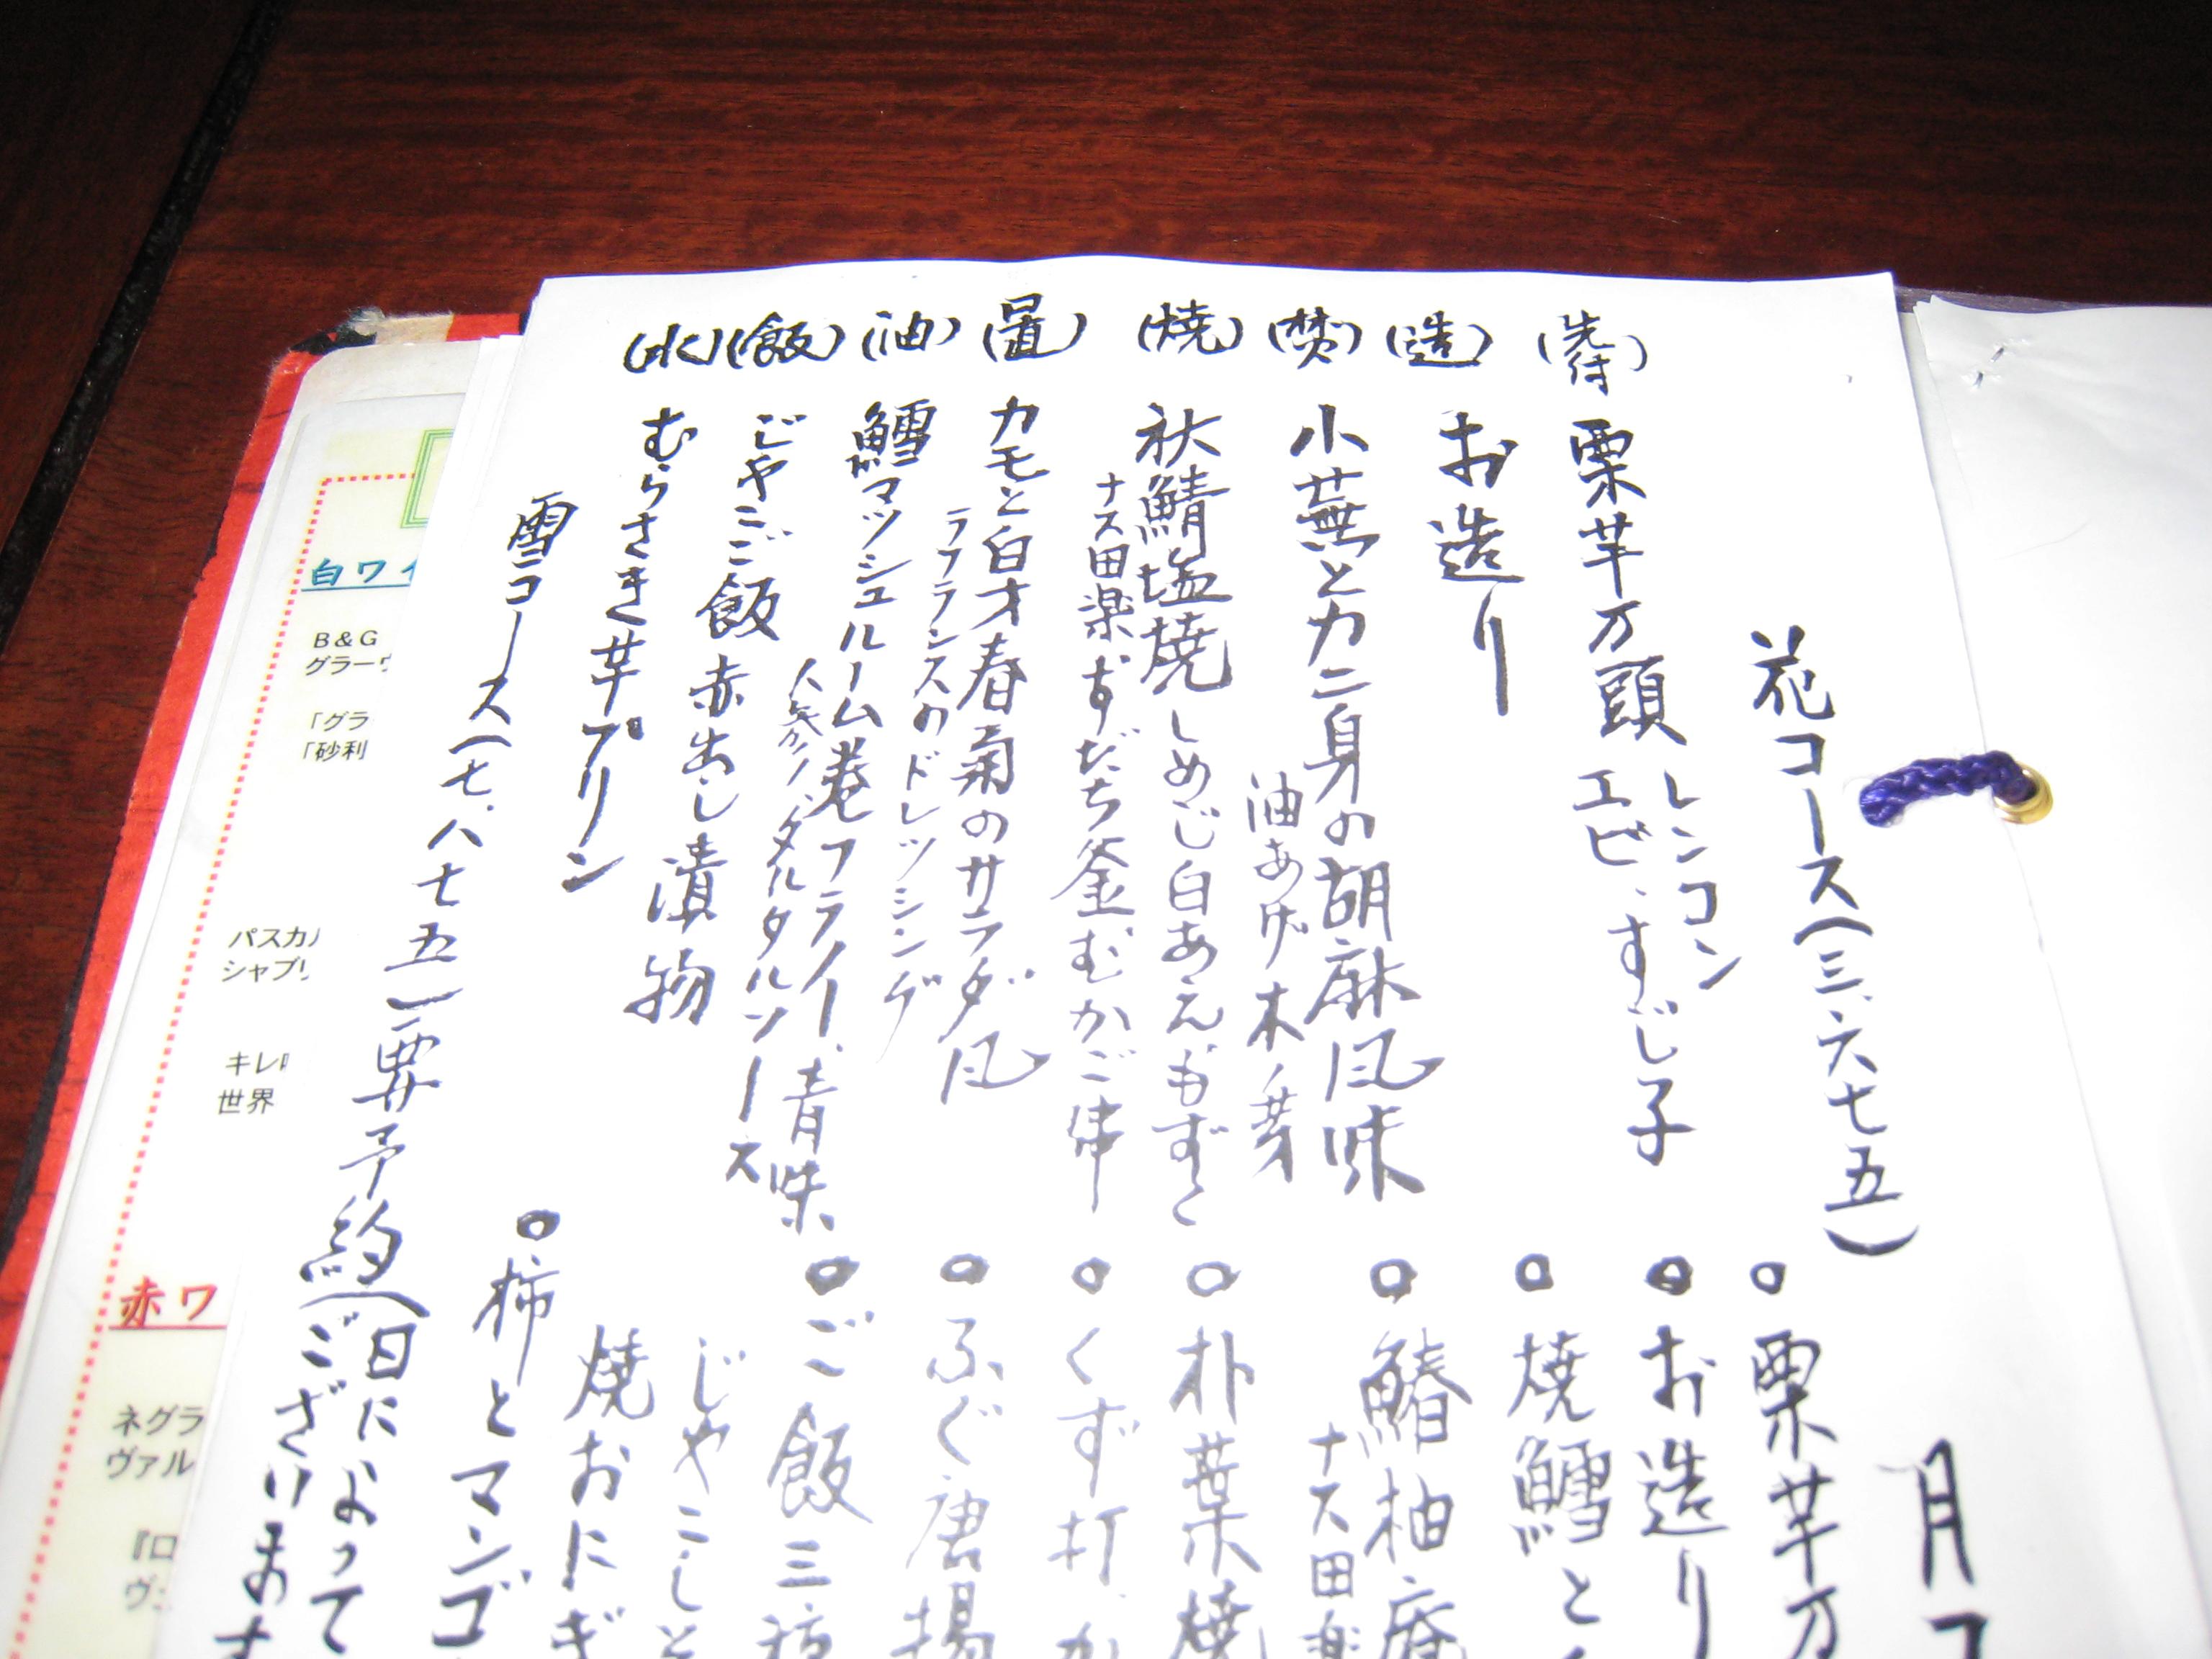 花コース(三、六七五)
(先付) 栗芋万頭 レンコン
エビ、すじ子
(造) お造り
(焚) 小蕪とカニ身の胡麻風味
油あげ 木ノ芽
(焼) 秋鯖塩焼 しめじ白あえ もずく
ナス田楽 すだち釜 むかご串
(置) カモと白才春菊のサラダ風
ラフランスのドレッシング
(油) 鱈マッシュルーム巻フライ、青味
人参ノタルタルソース
(飯) じゃこご飯 赤出し 漬物
(水) むらさき芋プリン
雪コース(七、八七五)要予約(日によって
ございます
月コ
○栗芋万
○お造り
○焼鱈と
○鰆柚庵
ナス田楽
○朴葉焼
○くず打、か
○ふぐ唐揚
○ご飯三種
じゃこしと
焼おにぎ
○柿とマンゴ
白ワイ
B&G
グラーヴ
「グラ
「砂利
パスカル
シャブリ
キレ
世界
赤ワ
ネグラ
ヴァル
『ロ